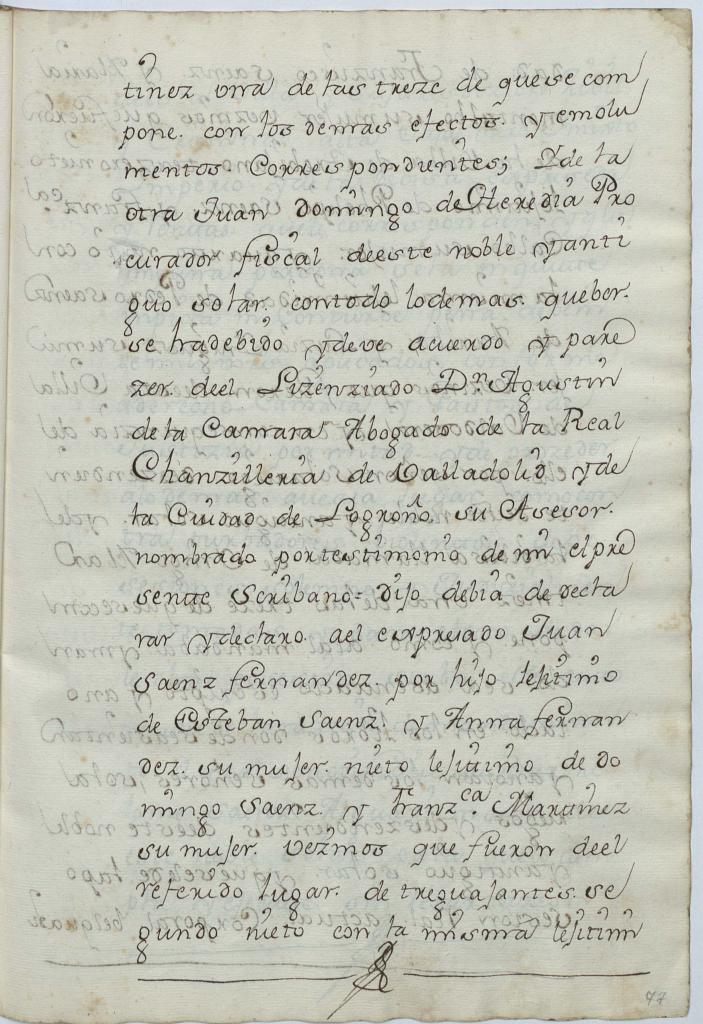 tinez una de las treze de que se com
pone. con los demas efectos. y emolu
mentos. Correspondientes; Y de la
otra Juan Domingo de Heredia Pro
curador fiscal de este noble y anti
guo solar. con todo lo demas. que ber.
se ha debido y deve acuerdo y pare
zer. de el Lizenziado Dn. Agustin
de la Camara Abogado de la Real
Chanzilleria de Valladolid y de
la Ciudad de Logroño. su Asesor.
nombrado por testimonio de mi el pre
sente Scribano= Dijo debia de decla
rar y declaro. a el expresado Juan
Saenz fernandez. por hijo lejitimo
de Esteban Saenz. y Anna fernan
dez. su mujer. nieto lejitimo de Do
mingo Saenz. y Franzca. Martinez
su mujer. vezinos que fueron de el
referido lugar. de treguajantes. se
gundo nieto con la misma lejitimi
77